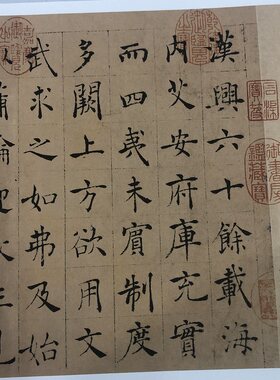 漢興六十餘載海
內艾安府庫充實
而四夷未賓制度
多闕上方欲用文
武求之如弗及始
蒲輪迎